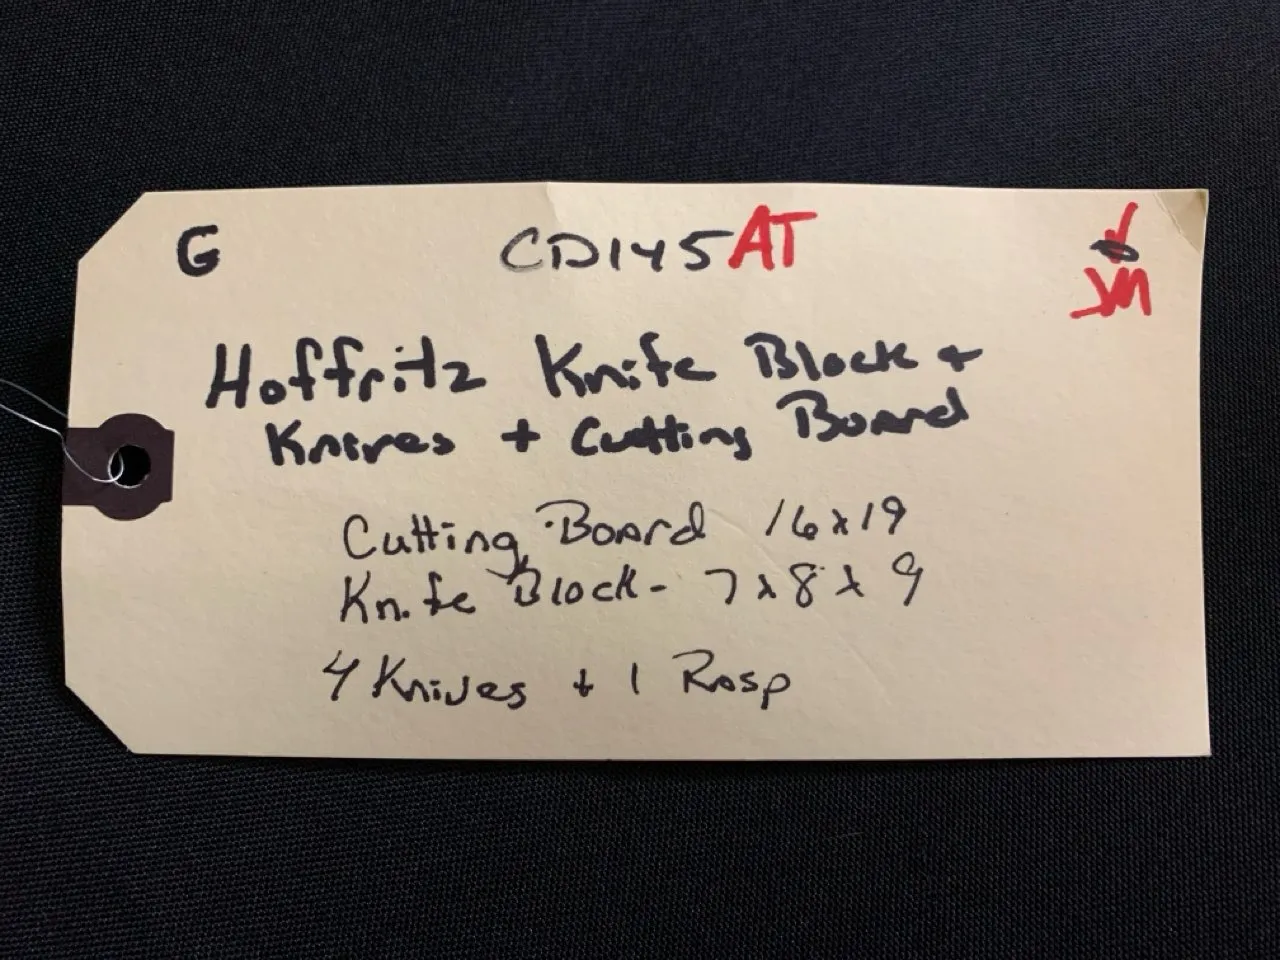 G CD145AT
Hoffritz Knife Block +
Knives + Cutting Board
Cutting Board 16x19
Knife Block - 7x8x9
4 Knives + 1 Rasp